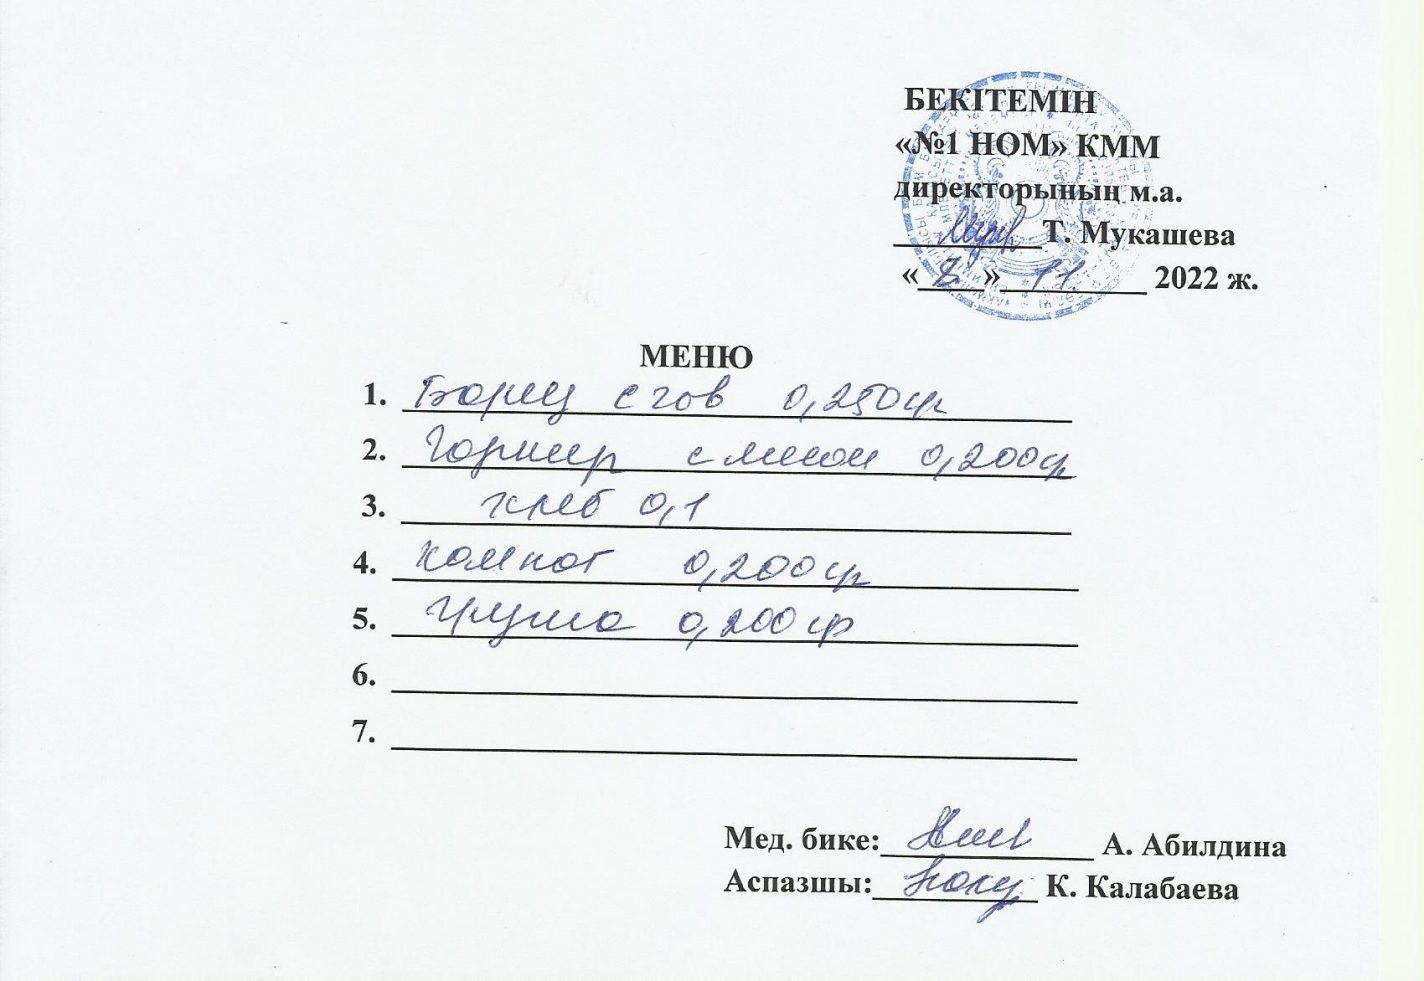 БЕКІТЕМІН
«№1 НОМ» КММ
директорының м.а.
Т. Мукашева
« 8 » 11 2022 ж.
МЕНЮ
1. Борщ с гов 0,250гр
2. Горнир с мясом 0,200гр
3. хлеб 0,1
4. компот 0,200гр
5. Груша 0,200гр
6.
7.
Мед. бике: А. Абилдина
Аспазшы: К. Калабаева